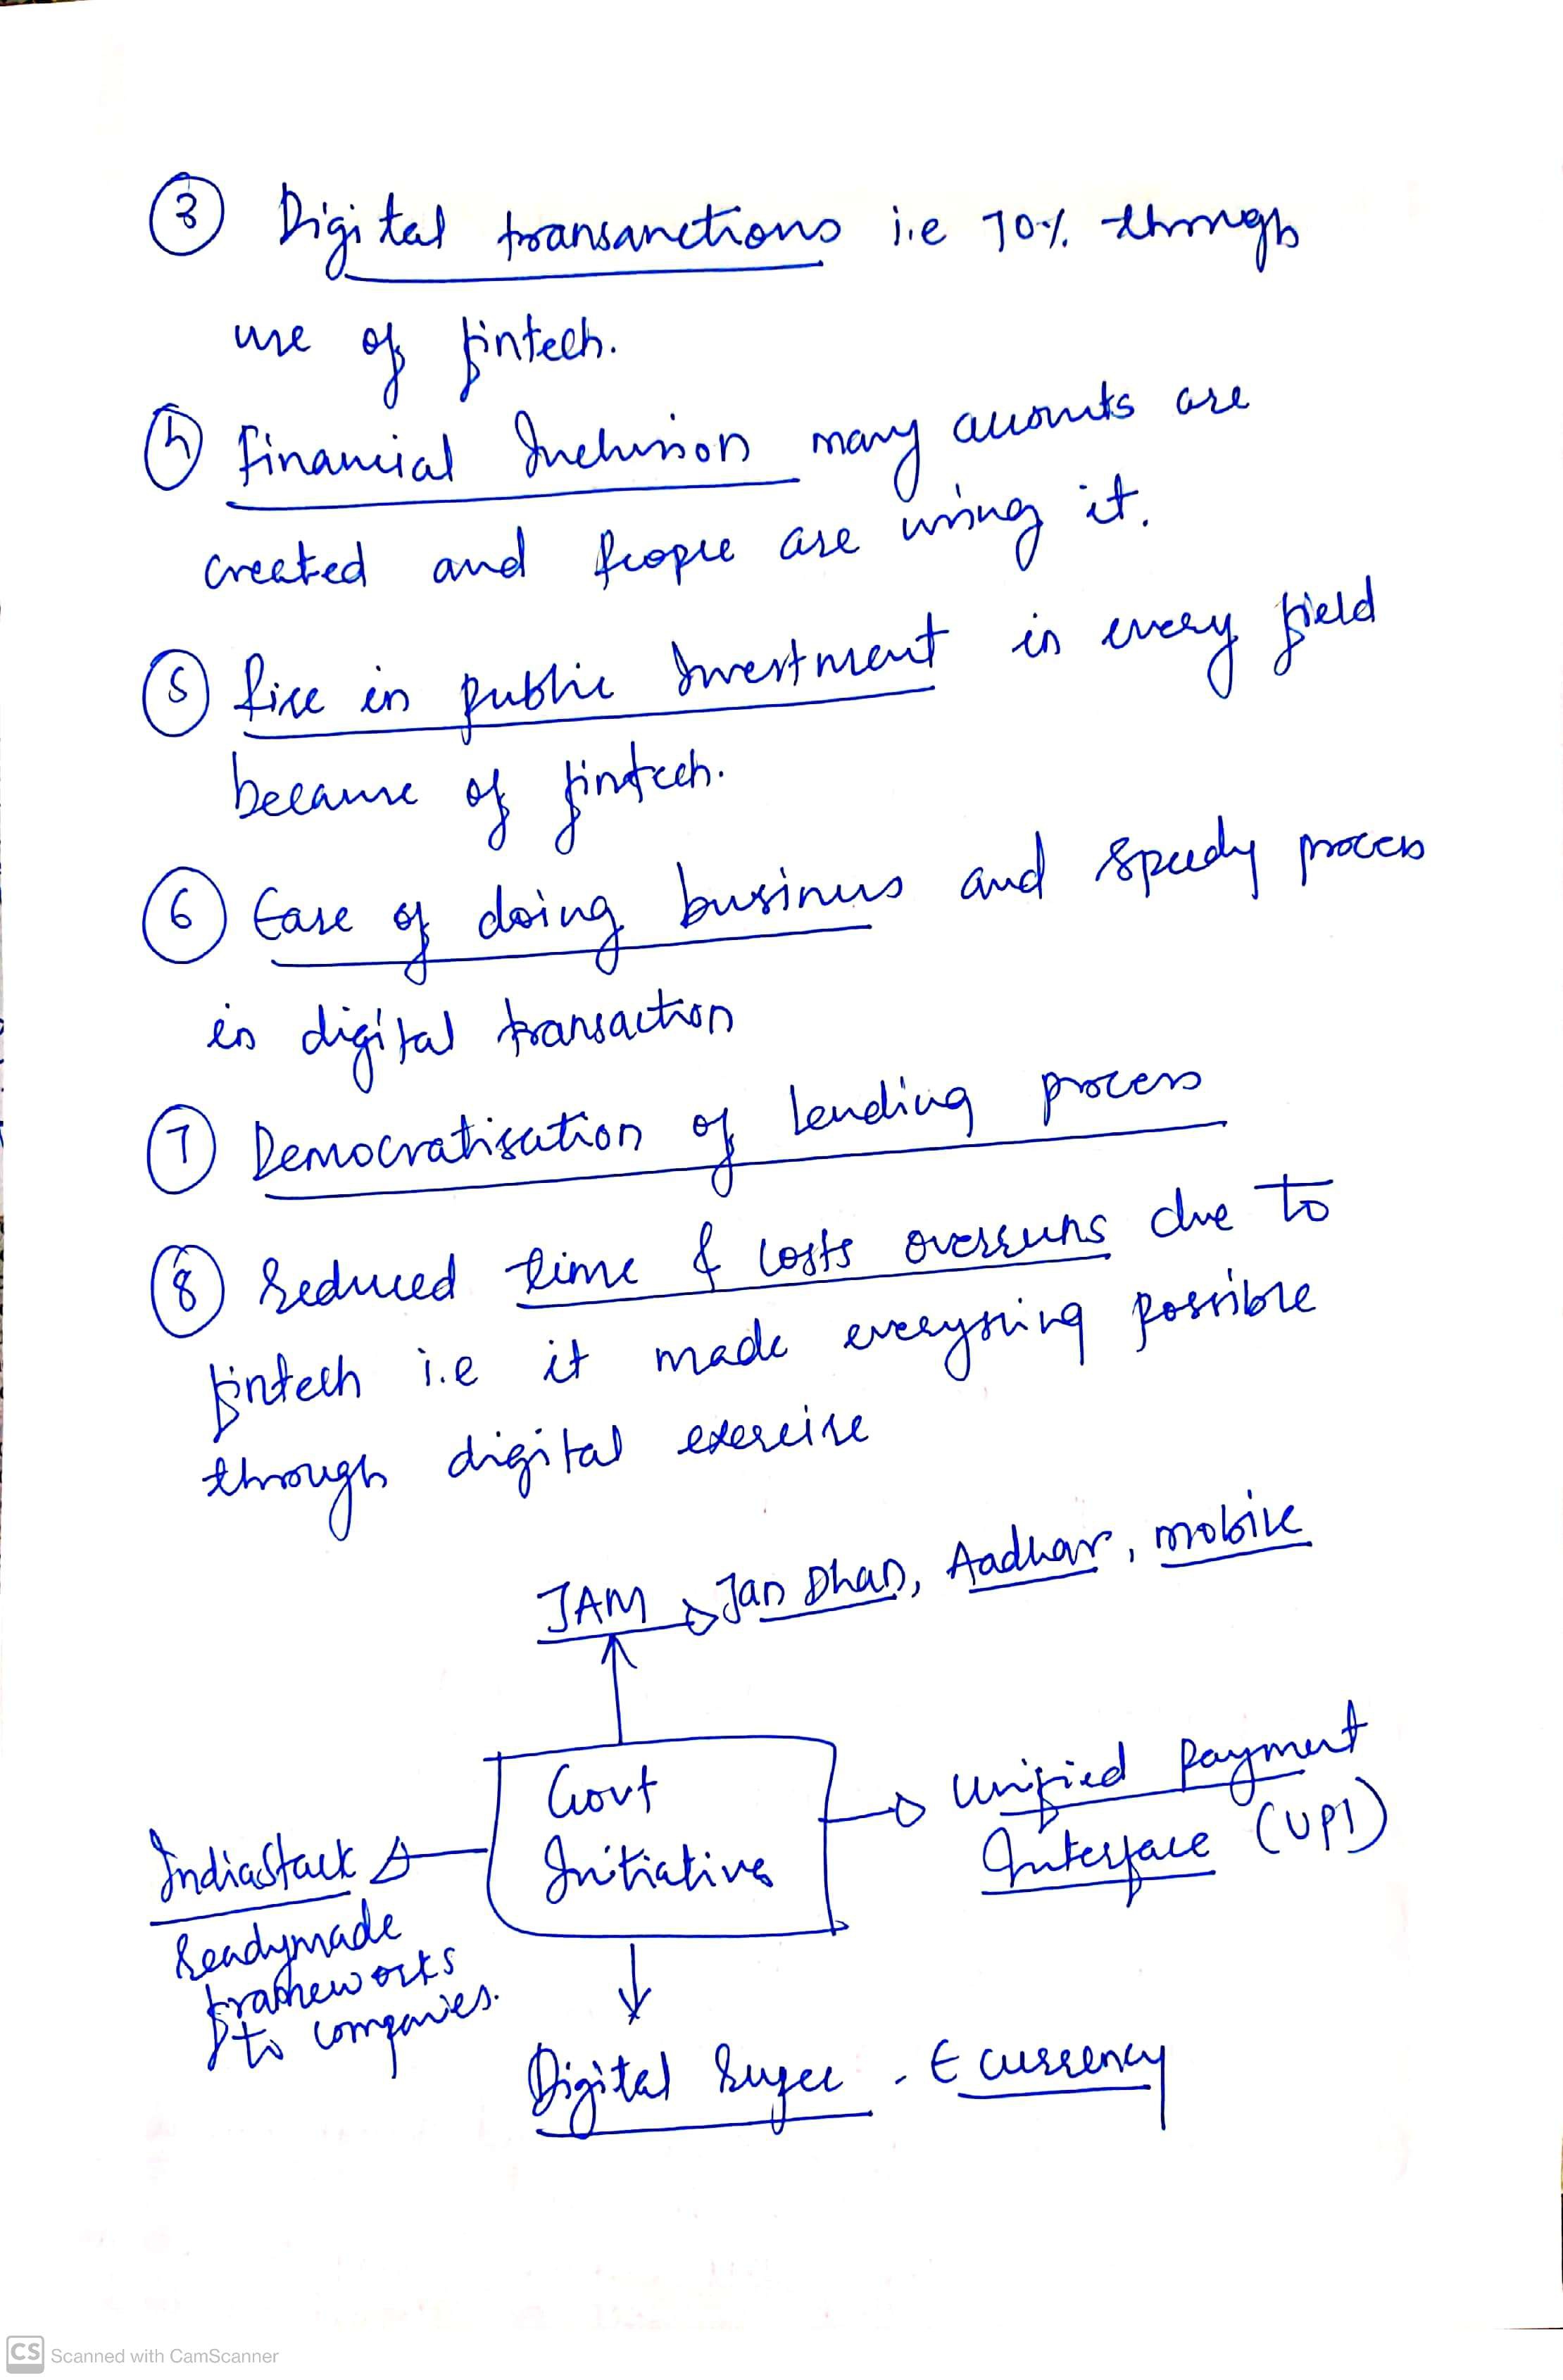 ③ Digital transanctions i.e 70% through
use of fintech.
④ Financial Inclusion many accounts are
created and people are using it.
⑤ Rise in public Investment in every field
because of fintech.
⑥ Ease of doing business and speedy process
in digital transaction
⑦ Democratisation of lending process
⑧ Reduced time & costs overruns due to
fintech i.e it made everything possible
through digital exercise
JAM → Jan Dhan, Aadhar, mobile
Govt
Initiatives
Unified Payment
Interface (UPI)
IndiaStack
Readymade
frameworks
to companies.
Digital Rupee - E currency
CS Scanned with CamScanner